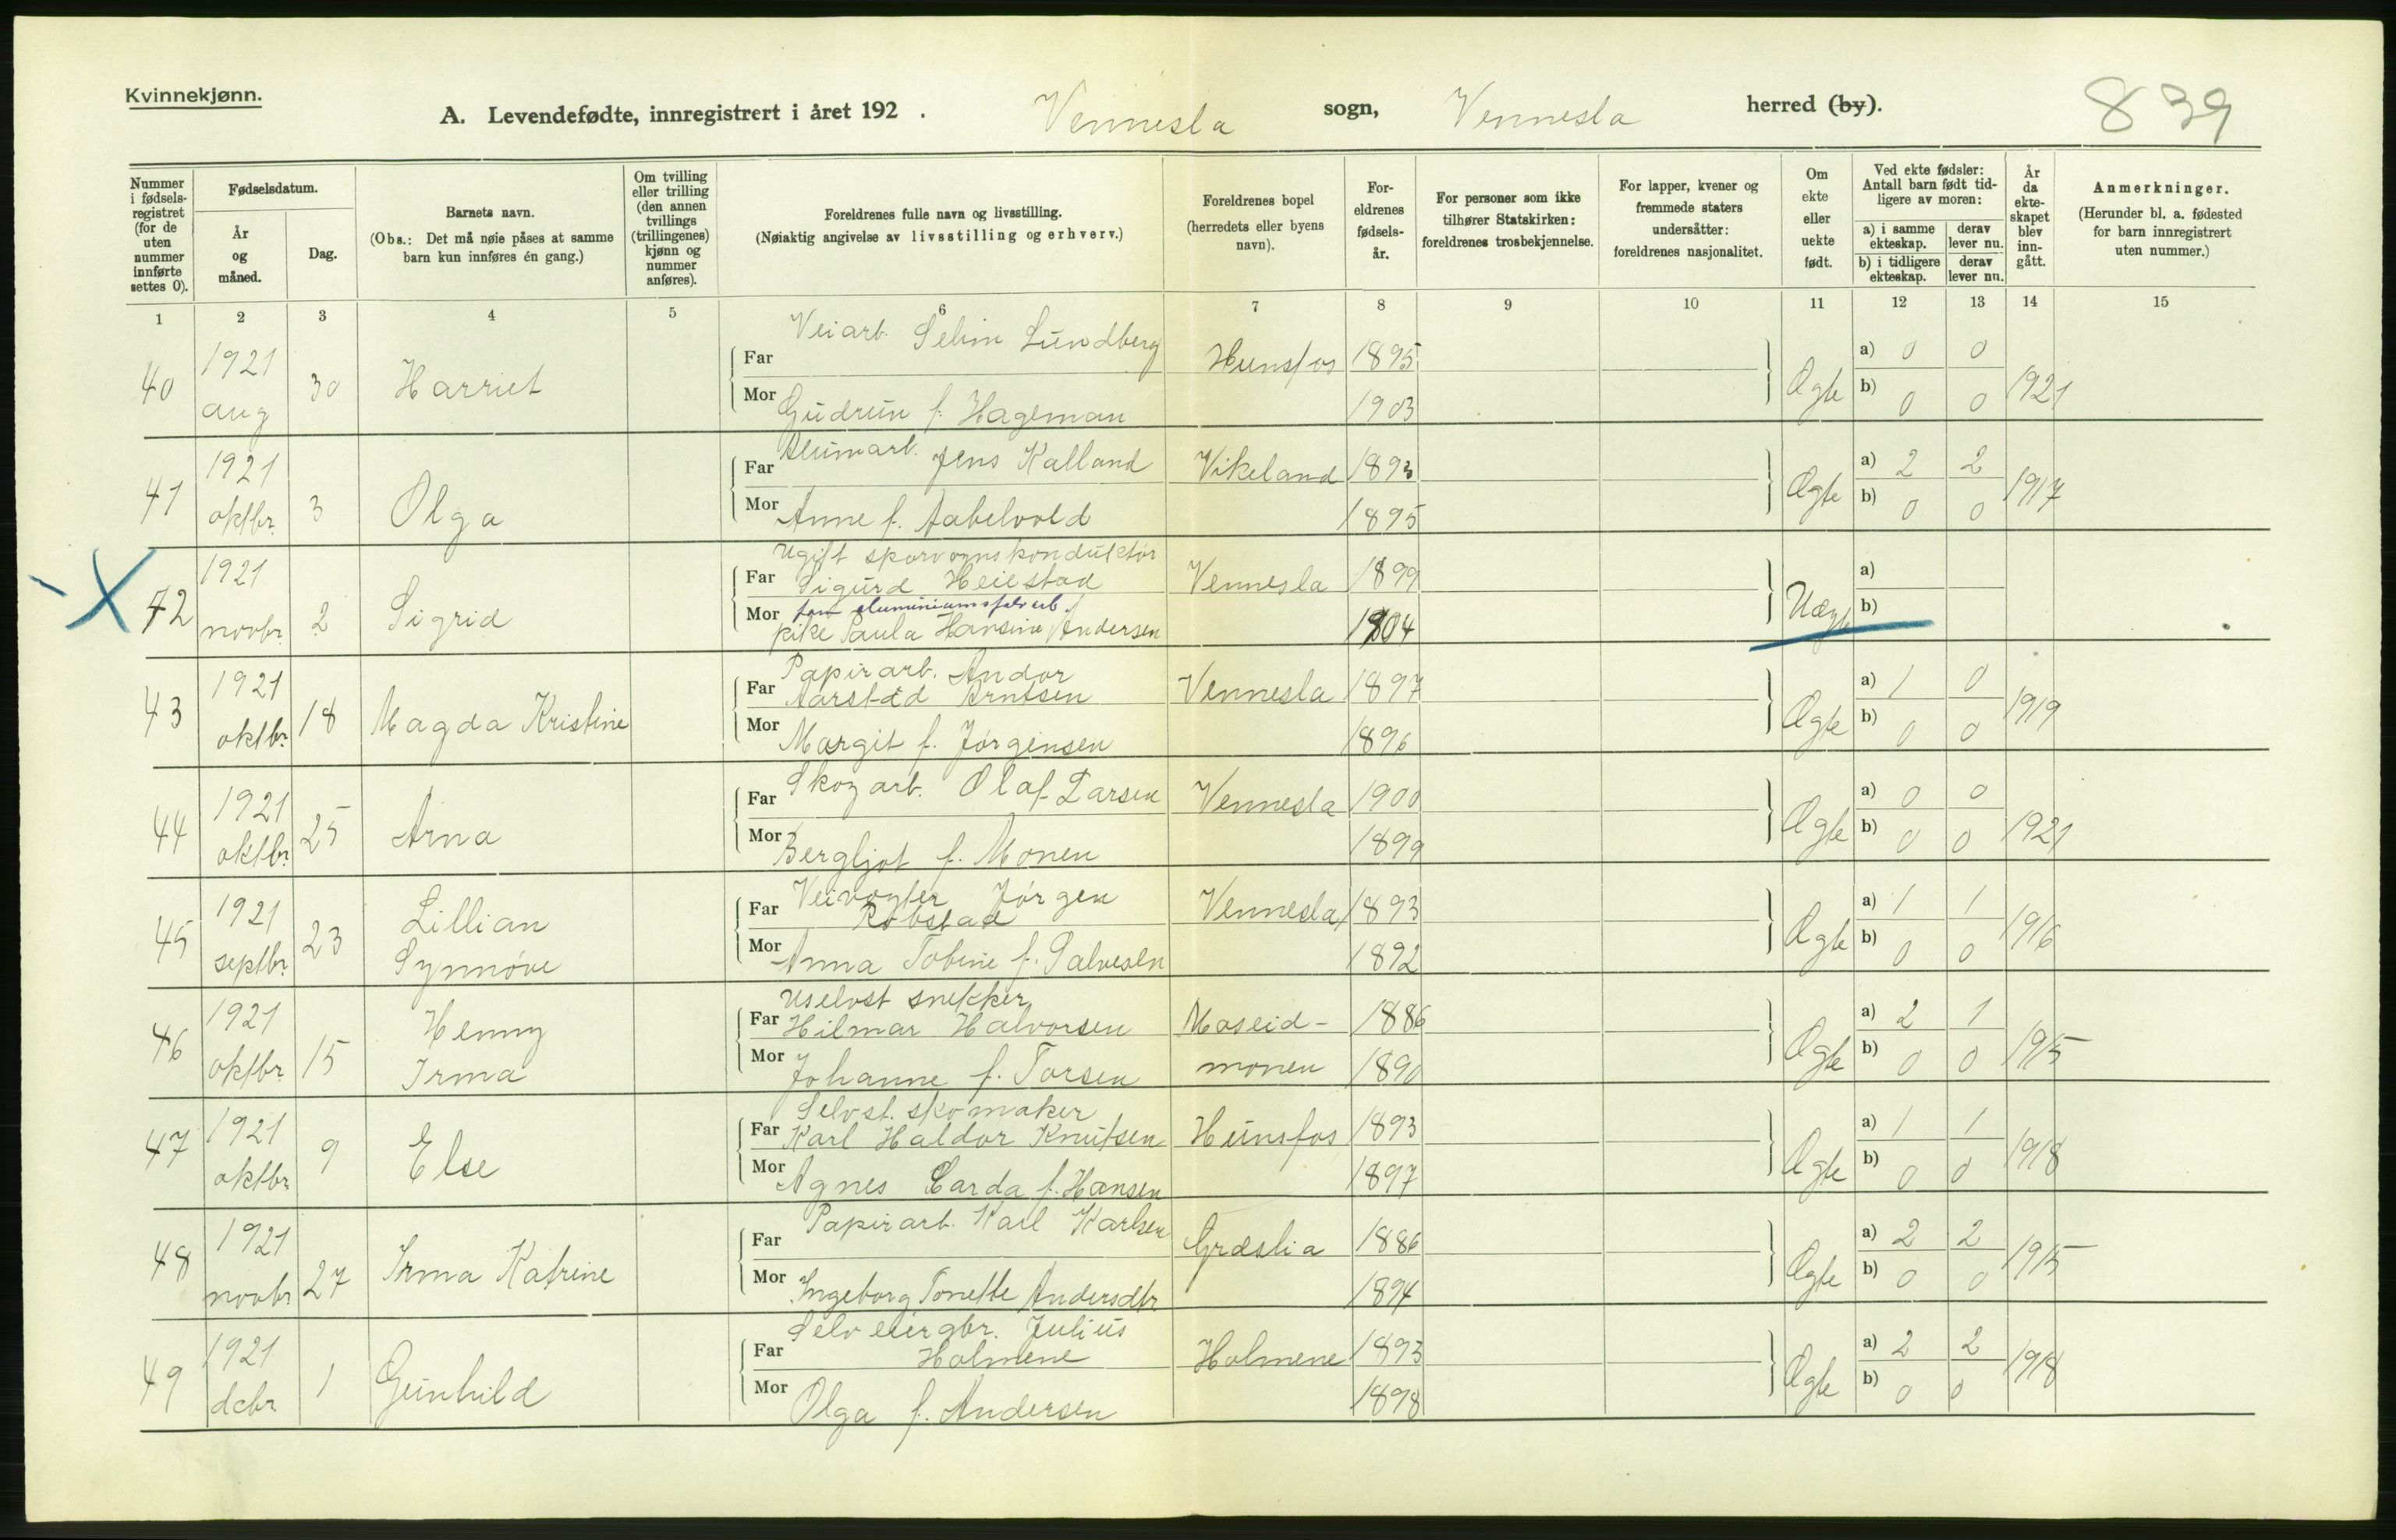 Kvinnekjønn.
A. Levendefødte, innregistrert i året 192 . Vennesla sogn, Vennesla herred (by). 839
Nummer i fødselsregistret (for de uten nummer innførte settes 0).
Fødselsdatum.
År og måned.
Dag.
Barnets navn.
(Obs.: Det må nøie påses at samme barn kun innføres én gang.)
Om tvilling eller trilling (den annen tvillings (trillingenes) kjønn og nummer anføres).
Foreldrenes fulle navn og livsstilling.
(Nøiaktig angivelse av livsstilling og erhverv.)
Foreldrenes bopel (herredets eller byens navn).
Foreldrenes fødselsår.
For personer som ikke tilhører Statskirken: foreldrenes trosbekjennelse.
For lapper, kvener og fremmede staters undersåtter: foreldrenes nasjonalitet.
Om ekte eller uekte født.
Ved ekte fødsler: Antall barn født tidligere av moren:
a) i samme ekteskap. derav lever nu.
b) i tidligere ekteskap. derav lever nu.
År da ekteskapet blev inngått.
Anmerkninger.
(Herunder bl. a. fødested for barn innregistrert uten nummer.)
1 2 3 4 5 6 7 8 9 10 11 12 13 14 15
40 1921 aug 30 Harriet
Far Veiarb. Selim Lundberg Hunsfos 1895
Mor Gudrun f. Hageman 1903
Ægte a) 0 0 b) 0 0 1921
41 1921 oktbr. 3 Olga
Far Alumarb. Jens Kalland Vikeland 1893
Mor Anne f. Aabelvold 1895
Ægte a) 2 2 b) 0 0 1917
X 42 1921 novbr. 2 Sigrid
Far Ugift sporvognskonduktør
Sigurd Heiestad Vennesla 1899
Mor aluminiumsfabarb.
pike Paula Hansine Andersen 1904
Uægte a) b)
43 1921 oktbr. 18 Magda Kristine
Far Papirarb. Andor
Aarstad Arntsen Vennesla 1897
Mor Margit f. Jørgensen 1896
Ægte a) 1 0 b) 0 0 1919
44 1921 oktbr. 25 Arna
Far Skogarb. Olaf Larsen Vennesla 1900
Mor Bergljot f. Monen 1899
Ægte a) 0 0 b) 0 0 1921
45 1921 septbr. 23 Lillian Synnøve
Far Veivogter Jørgen
Robstad Vennesla 1893
Mor Anna Tobine f. Salvesen 1892
Ægte a) 1 1 b) 0 0 1916
46 1921 oktbr. 15 Henny Irma
Far Uselvst snekker
Hilmar Halvorsen Moseid- 1886
Mor Johanne f. Torsen monen 1890
Ægte a) 2 1 b) 0 0 1915
47 1921 oktbr 9 Else
Far Selvst. skomaker
Karl Haldor Knutsen Hunsfos 1893
Mor Agnes Carda f. Hansen 1897
Ægte a) 1 1 b) 0 0 1918
48 1921 novbr 27 Irma Katrine
Far Papirarb. Karl Karlsen Græslia 1886
Mor Ingeborg Tonette Andersdtr 1894
Ægte a) 2 2 b) 0 0 1915
49 1921 dcbr. 1 Gunhild
Far Selveiergbr. Julius
Holmene Holmene 1893
Mor Olga f. Andersen 1898
Ægte a) 2 2 b) 0 0 1918